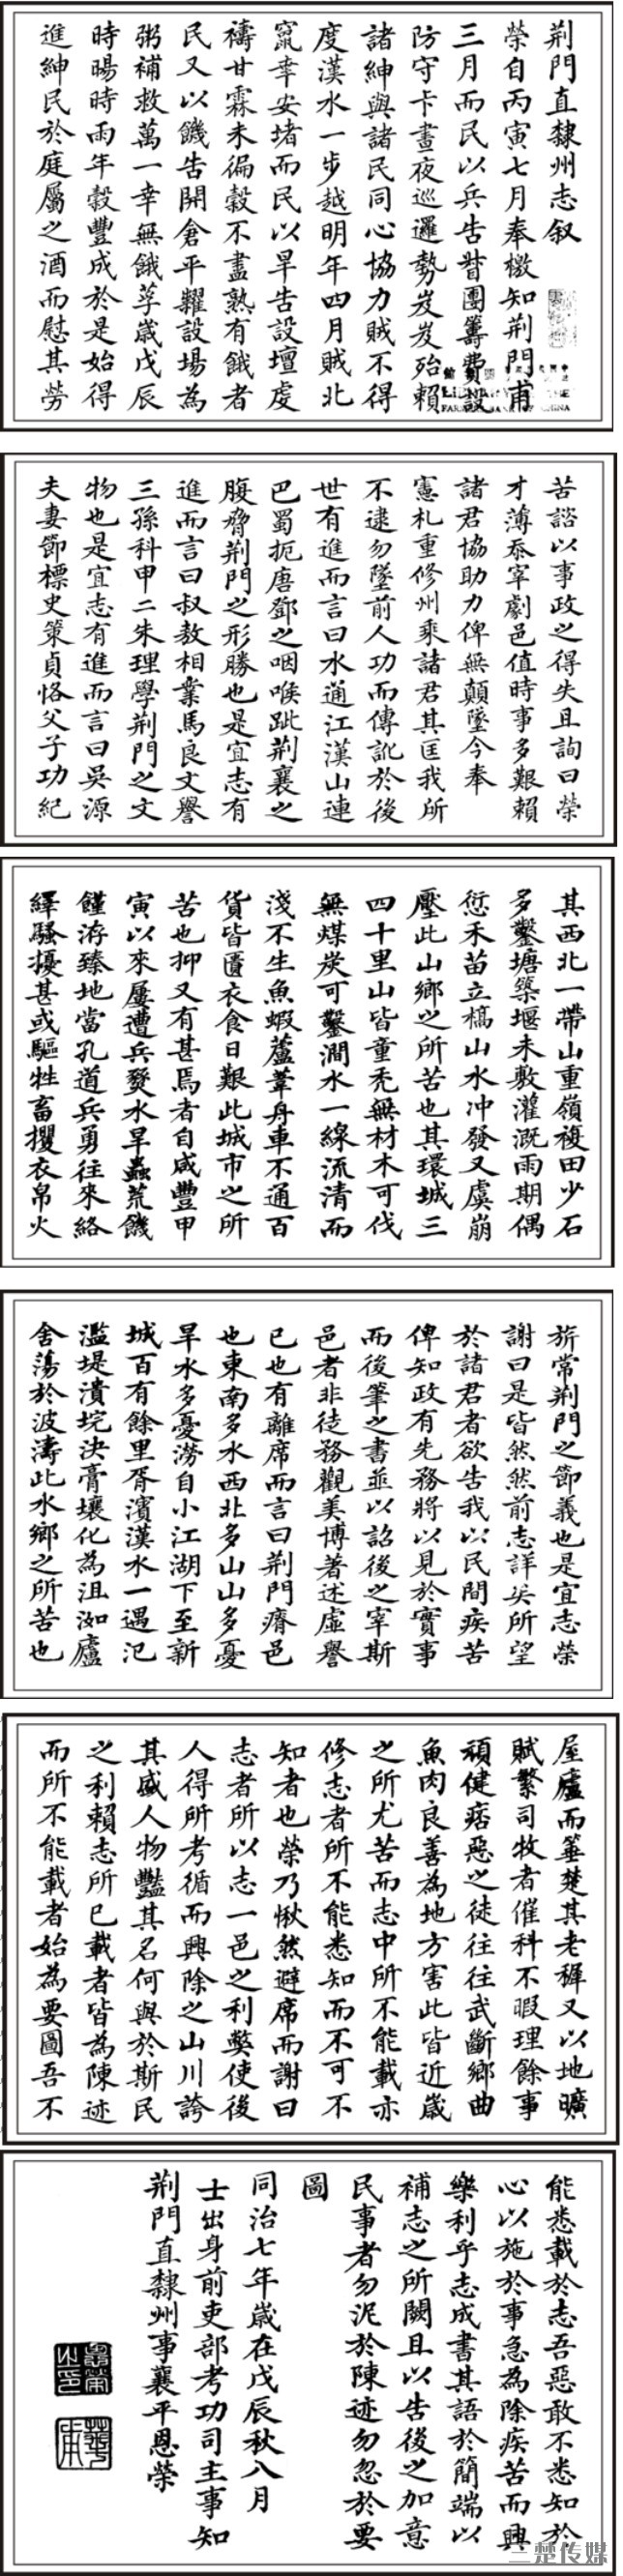 荊門直隸州志叙
榮自丙寅七月奉檄知荊門甫
三月而民以兵告督團籌費設
防守卡晝夜巡邏勢岌岌殆賴
諸紳與諸民同心協力賊不得
度漢水一步越明年四月賊北
竄幸安堵而民以旱告設壇虔
禱甘霖未徧穀不盡熟有餓者
民又以饑告開倉平糶設場為
粥補救萬一幸無餓莩歲戊辰
時暘時雨年穀豐成於是始得
進紳民於庭屬之酒而慰其勞
苦諮以事政之得失且詢曰榮
才薄忝宰劇邑值時事多艱賴
諸君協助力俾無顛墜今奉
憲札重修州乘諸君其匡我所
不逮勿墜前人功而傳訛於後
世有進而言曰水通江漢山連
巴蜀扼唐鄧之咽喉跐荆襄之
腹脅荆門之形勝也是宜志有
進而言曰叔敖相業馬良文譽
三孫科甲二朱理學荆門之文
物也是宜志有進而言曰吳源
夫妻節標史策貞恪父子功紀
其西北一帶山重嶺複田少石
多鑿塘築堰未敷灌溉雨期偶
愆禾苗立槁山水冲發又虞崩
壓此山鄉之所苦也其環城三
四十里山皆童禿無材木可伐
無煤炭可鑿澗水一線流清而
淺不生魚蝦蘆葦舟車不通百
貨皆匱衣食日艱此城市之所
苦也抑又有甚焉者自咸豐甲
寅以來屢遭兵燹水旱蟲荒饑
饉洊臻地當孔道兵勇往來絡
繹騷擾甚或驅牲畜攫衣帛火
旂常荆門之節義也是宜志榮
謝曰是皆然然前志詳矣所望
於諸君者欲告我以民間疾苦
俾知政有先務將以見於實事
而後筆之書並以詔後之宰斯
邑者非徒務觀美博著述虛譽
已也有離席而言曰荆門瘠邑
也東南多水西北多山山多憂
旱水多憂澇自小江湖下至新
城百有餘里胥濱漢水一遇氾
濫堤潰垸決膏壤化為沮洳廬
舍蕩於波濤此水鄉之所苦也
屋廬而箠楚其老穉又以地曠
賦繁司牧者催科不暇理餘事
頑健痞惡之徒往往武斷鄉曲
魚肉良善為地方害此皆近歲
之所尤苦而志中所不能載亦
修志者所不能悉知而不可不
知者也榮乃愀然避席而謝曰
志者所以志一邑之利獘使後
人得所考循而興除之山川誇
其盛人物豔其名何與於斯民
之利賴志所已載者皆為陳迹
而所不能載者始為要圖吾不
能悉載於志吾惡敢不悉知於
心以施於事急為除疾苦而興
樂利乎志成書其語於簡端以
補志之所闕且以告後之加意
民事者勿泥於陳迹勿忽於要
圖
同治七年歲在戊辰秋八月
士出身前吏部考功司主事知
荆門直隸州事襄平恩榮
三楚传媒